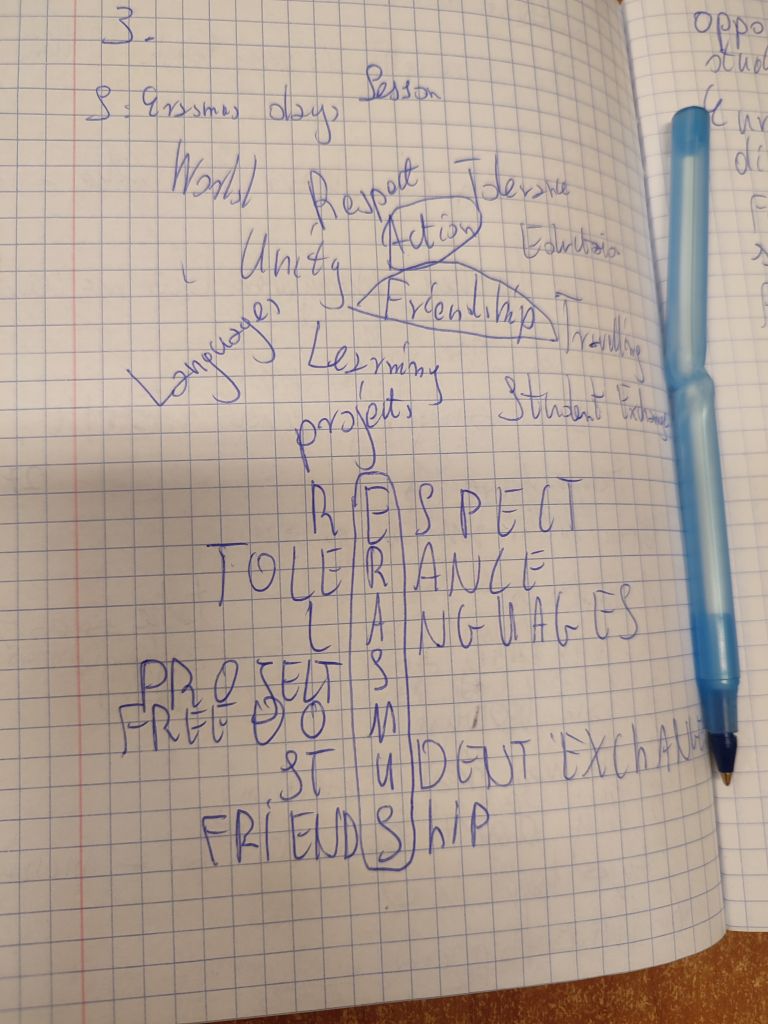 3.
S: Erasmus days Session
World Respect Tolerance
Unity Action Education
Languages Friendship Travelling
Learning
projects Student Exchange
RESPECT
TOLERANCE
LANGUAGES
PROJECTS
FREEDOM
STUDENT EXChANGE
FRiENDShiP
oppo
stud
di